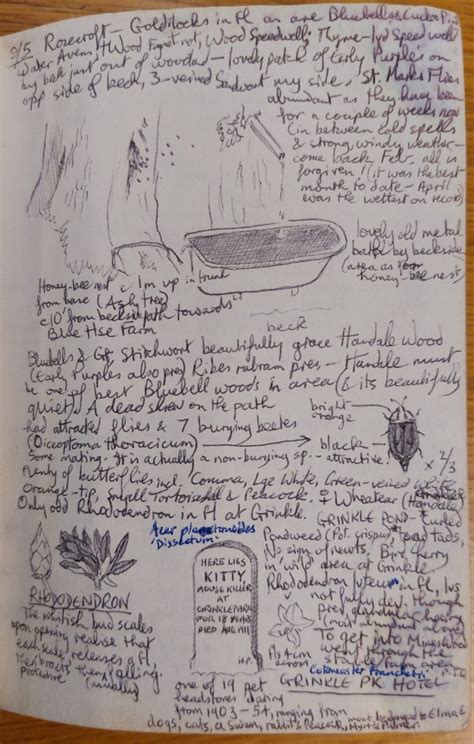 9/5 Rosecroft – Goldilocks in fl as are Bluebells & Cuckoo Pint
Water Avens, Wood Forget-, Wood Speedwell, Thyme-lvd Speedwell
by beck just out of woodland – lovely patch of Early Purples on
opp side of beck, 3-veined Sandwort my side. St. Marks Flies
abundant as they have been
for a couple of weeks now
(in between cold spells
& strong windy weather –
come back Feb. all is
forgiven! (it was the best
month to date – April
was the wettest on record)
lovely old metal
bath by beckside
(area as
honey-bee nest)
Honey-bee nest c 1m up in trunk
from base (Ash tree)
c10' from beckside path towards
Blue Hse Farm
beck
Bluebells & Gt Stitchwort beautifully grace Handale Wood
(Early Purples also pres) Ribes rubrum pres – Handale must
be one of best Bluebell woods in area (& its beautifully
quiet). A dead shrew on the path
had attracted flies & 7 burying beetles
(Oiceoptoma thoracicum)
bright
orange
black –
attractive!
x 2/3
some mating. It is actually a non-burying sp.
Plenty of butterflies incl. Comma, Lge White, Green-veined White
Orange-tip, Small Tortoiseshell & Peacock. ♀ Wheatear (Handale)
Only odd Rhododendron in fl at Grinkle.
Acer
'Dissectum'
GRINKLE POND – Curled
Pondweed (Pot. crispus), toad tads,
No sign of newts, Bird Cherry
in 'wild' area at Grinkle
Rhododendron luteum in fl, lvs
not fully dev. though
pres, glandular hairy
To get into
went through the
area
fls 4cm
across
Cotoneaster franchetii
GRINKLE PK HOTEL
RHODODENDRON
The whitish bud scales
upon opening realise that
each scale releases a fl,
their bracts then falling.
(usually
protective
HERE LIES
KITTY,
MOUSE KILLER
AT
GRINKLE PARK
FOR 18 YEARS
DIED AUG 1911
H.P.
one of 19 pet
headstones dating
from 1903 – 54, ranging from
dogs, cats, a Swan, rabbits Peacock,
most belonged to
Palmer